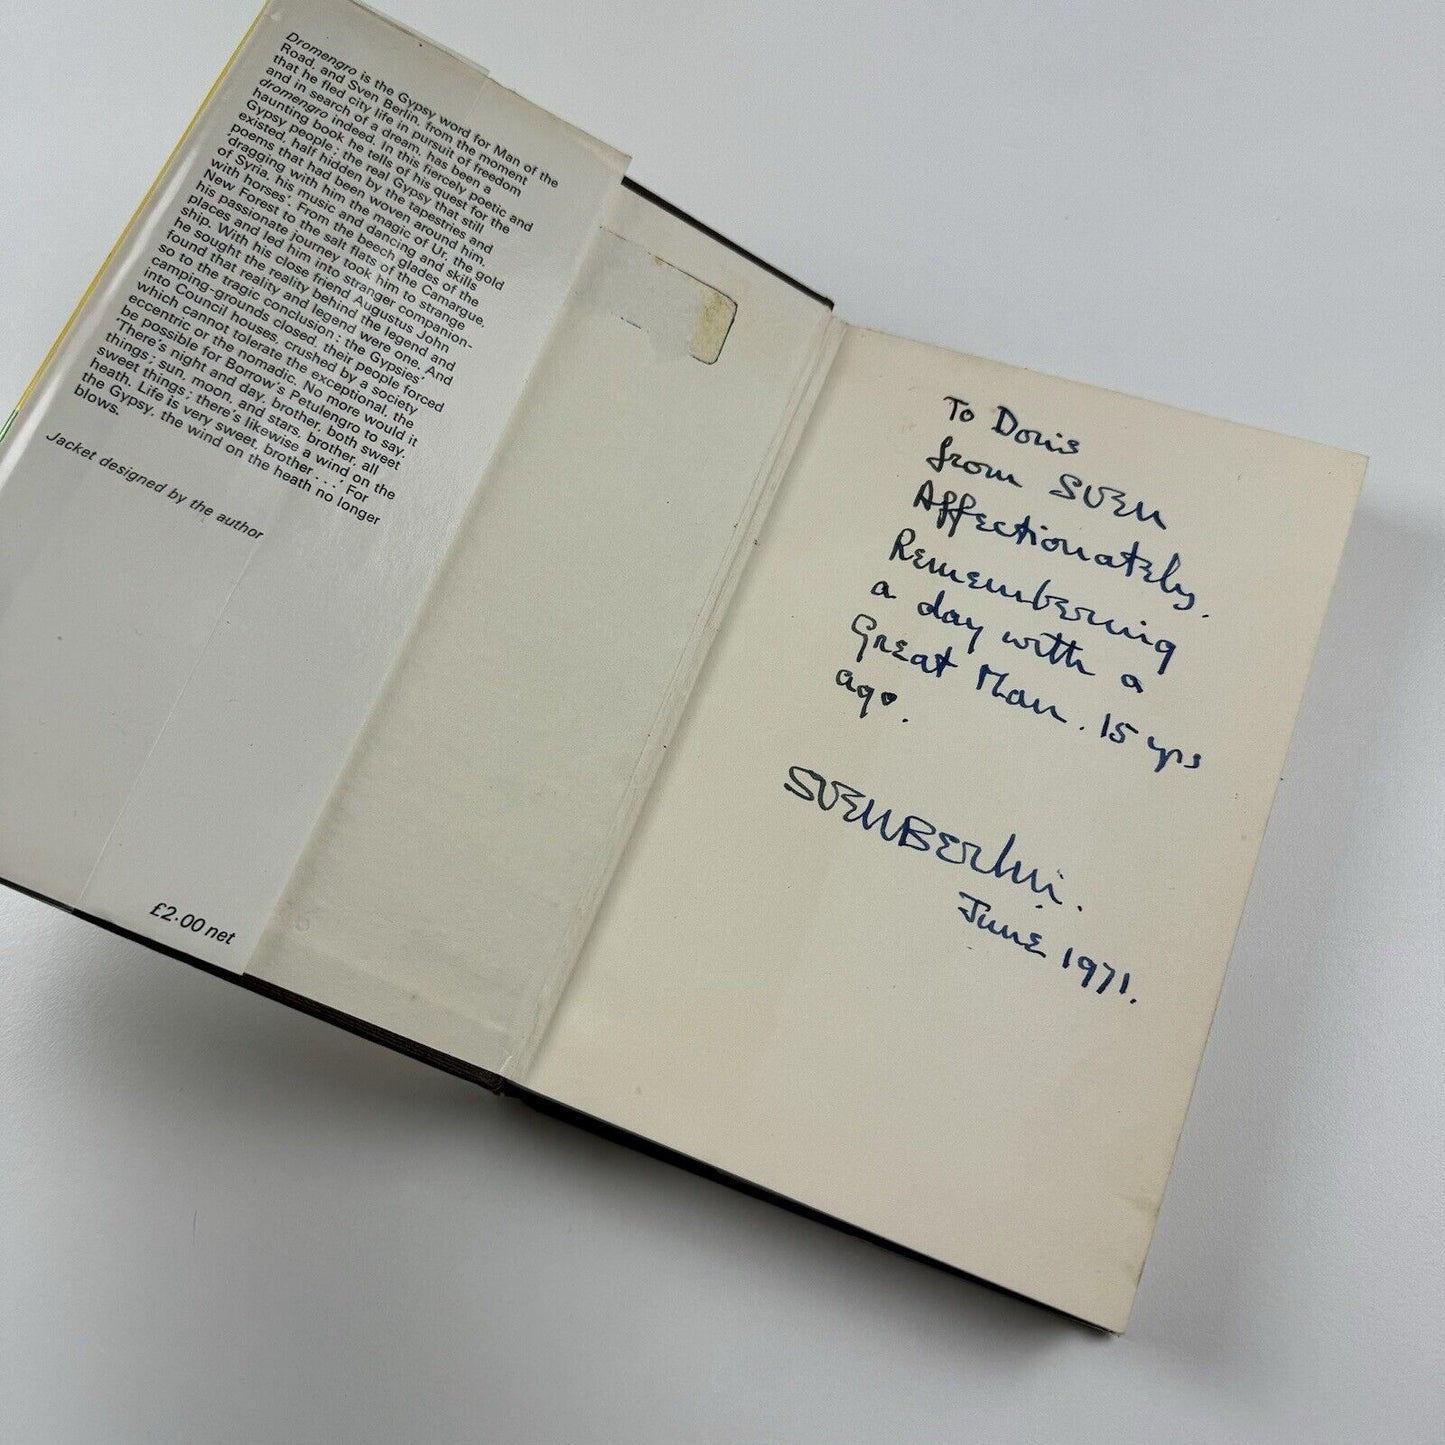 Dromengro is the Gypsy word for Man of the
Road, and Sven Berlin, from the moment
that he fled city life in pursuit of freedom
and in search of a dream, has been a
dromengro indeed. In this fiercely poetic and
haunting book he tells of his quest for the
Gypsy people; the real Gypsy that still
existed, half hidden by the tapestries and
poems that had been woven around him,
'dragging with him the magic of Ur, the gold
of Syria, his music and dancing and skills
with horses'. From the beech glades of the
New Forest to the salt flats of the Camargue,
his passionate journey took him to strange
places and led him into stranger companion-
ship. With his close friend Augustus John
he sought the reality behind the legend and
found that reality and legend were one. And
so to the tragic conclusion: the Gypsies'
camping-grounds closed, their people forced
into Council houses, crushed by a society
which cannot tolerate the exceptional, the
eccentric or the nomadic. No more would it
be possible for Borrow's Petulengro to say,
'There's night and day, brother, both sweet
things; sun, moon, and stars, brother, all
sweet things; there's likewise a wind on the
heath. Life is very sweet, brother . . .' For
the Gypsy, the wind on the heath no longer
blows.
Jacket designed by the author
£2·00 net
To Doris
from SVEN
Affectionately.
Remembering
a day with a
Great Man. 15 yrs
ago.
SVEN BErlin.
June 1971.